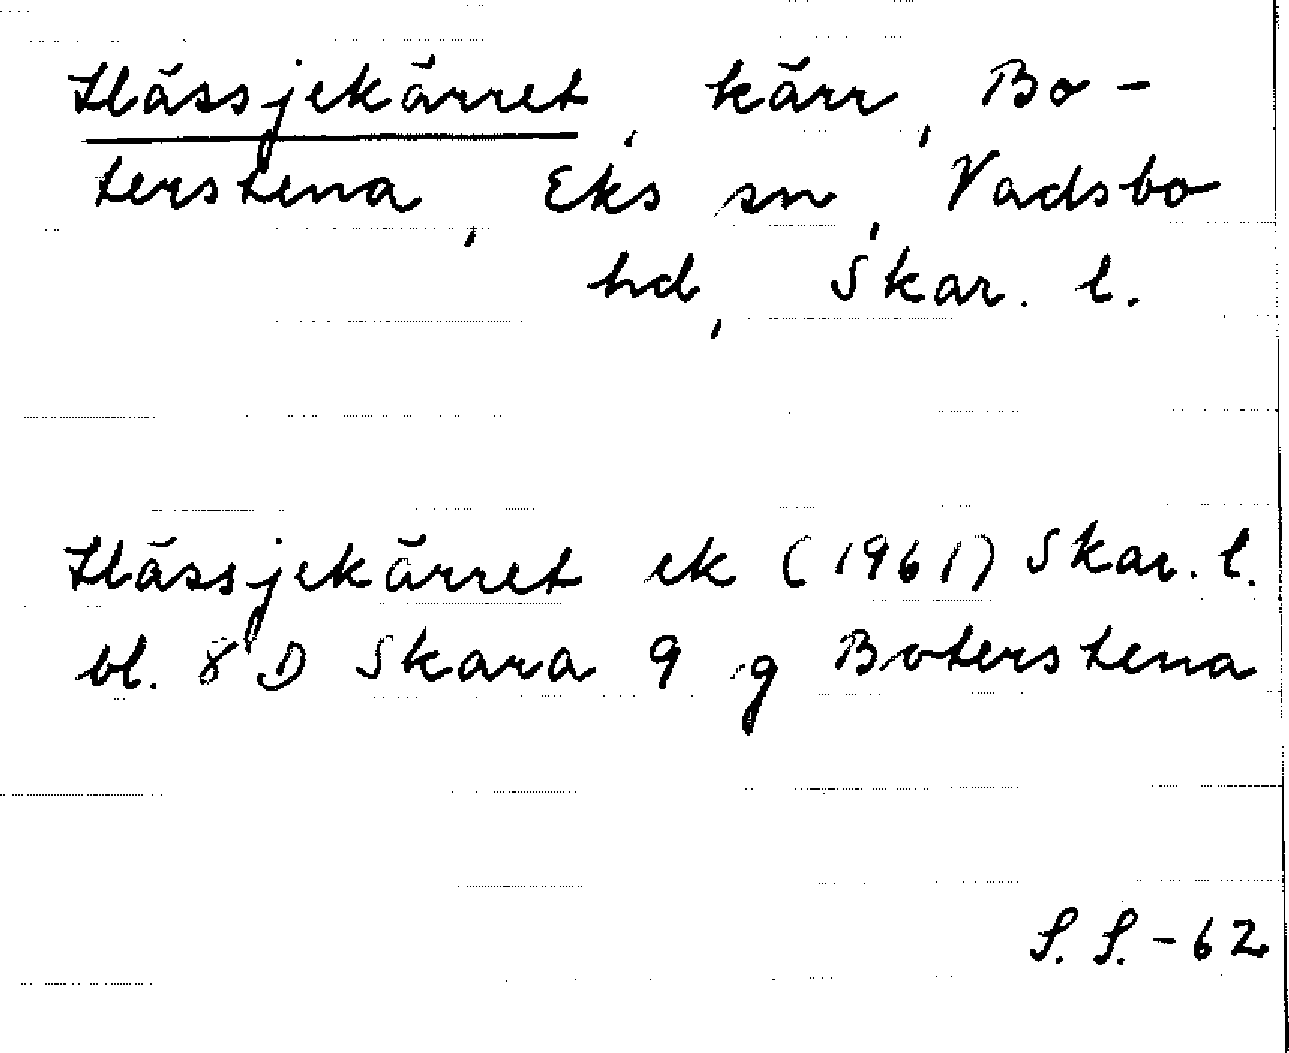 Hässjekärret, kärr, Bo-
terstena, Eks sn, Vadsbo
hd, Skar. l.
Hässjekärret ek (1961) Skar. l.
bl. 8 D Skara 9 g Boterstena
S. S. -62